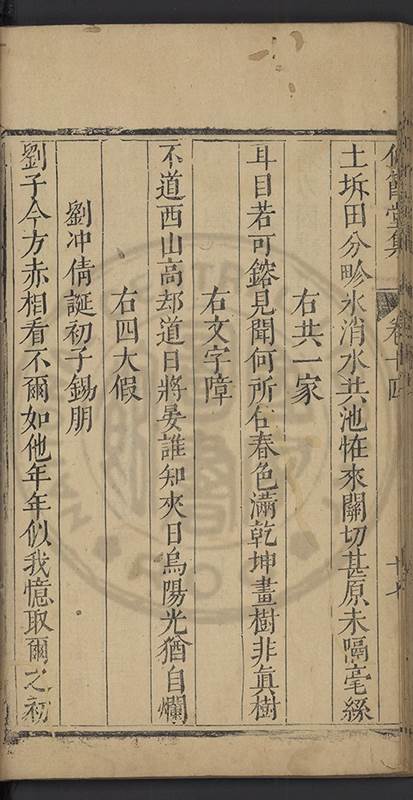 卷十四
土坼田分畛水消水共池怪來關切甚原未隔毫絲
右共一家
耳目若可鎔見聞何所右春色滿乾坤畫樹非眞樹
右文字障
不道西山高却道日將晏誰知夾日烏陽光猶自爛
右四大假
劉冲倩誕初子錫朋
劉子今方赤相看不爾如他年年似我憶取爾之初